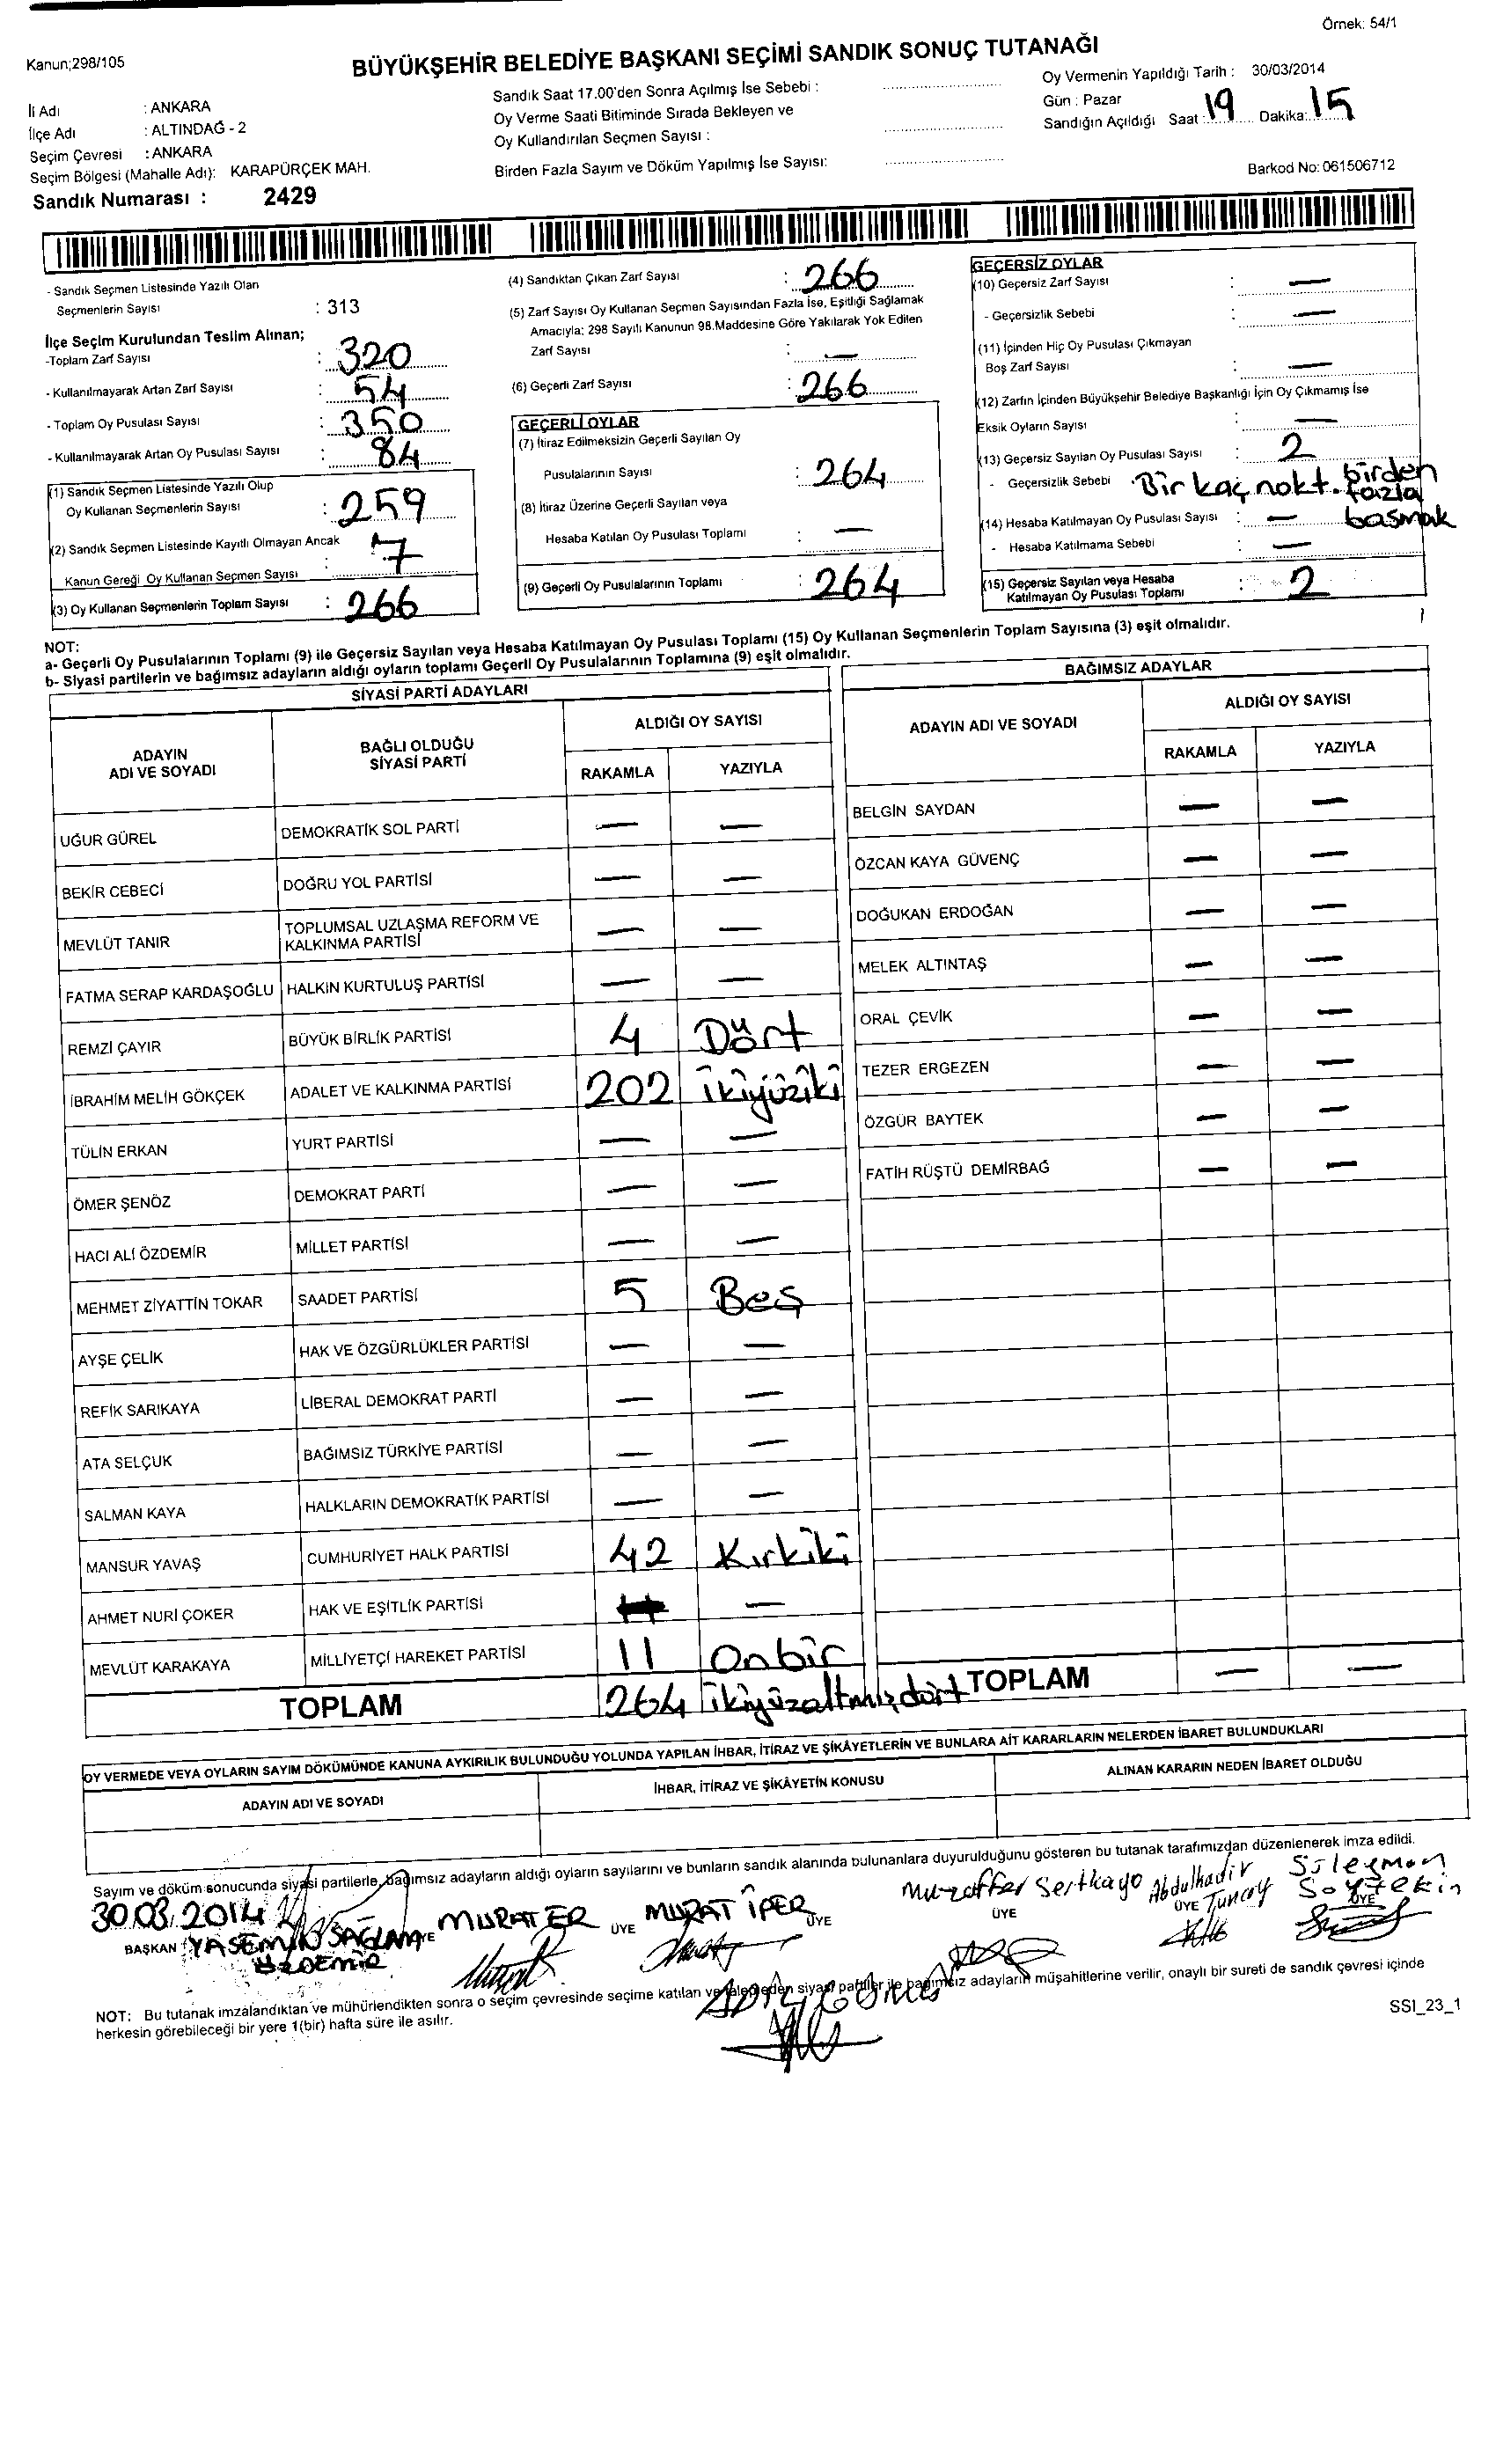 Örnek: 54/1
Kanun;298/105
BÜYÜKŞEHİR BELEDİYE BAŞKANI SEÇİMİ SANDIK SONUÇ TUTANAĞI
İl Adı : ANKARA
İlçe Adı : ALTINDAĞ - 2
Seçim Çevresi : ANKARA
Seçim Bölgesi (Mahalle Adı): KARAPÜRÇEK MAH.
Sandık Numarası : 2429
Sandık Saat 17.00'den Sonra Açılmış İse Sebebi :
Oy Verme Saati Bitiminde Sırada Bekleyen ve
Oy Kullandırılan Seçmen Sayısı :
Birden Fazla Sayım ve Döküm Yapılmış İse Sayısı:
Oy Vermenin Yapıldığı Tarih : 30/03/2014
Gün : Pazar
Sandığın Açıldığı Saat : 19 Dakika: 15
Barkod No: 061506712
- Sandık Seçmen Listesinde Yazılı Olan
Seçmenlerin Sayısı : 313
İlçe Seçim Kurulundan Teslim Alınan;
-Toplam Zarf Sayısı : 320
- Kullanılmayarak Artan Zarf Sayısı : 54
- Toplam Oy Pusulası Sayısı : 350
- Kullanılmayarak Artan Oy Pusulası Sayısı : 84
(1) Sandık Seçmen Listesinde Yazılı Olup
Oy Kullanan Seçmenlerin Sayısı : 259
(2) Sandık Seçmen Listesinde Kayıtlı Olmayan Ancak
Kanun Gereği Oy Kullanan Seçmen Sayısı : 7
(3) Oy Kullanan Seçmenlerin Toplam Sayısı : 266
(4) Sandıktan Çıkan Zarf Sayısı : 266
(5) Zarf Sayısı Oy Kullanan Seçmen Sayısından Fazla İse, Eşitliği Sağlamak
Amacıyla; 298 Sayılı Kanunun 98.Maddesine Göre Yakılarak Yok Edilen
Zarf Sayısı : —
(6) Geçerli Zarf Sayısı : 266
GEÇERLİ OYLAR
(7) İtiraz Edilmeksizin Geçerli Sayılan Oy
Pusulalarının Sayısı : 264
(8) İtiraz Üzerine Geçerli Sayılan veya
Hesaba Katılan Oy Pusulası Toplamı : —
(9) Geçerli Oy Pusulalarının Toplamı : 264
GEÇERSİZ OYLAR
(10) Geçersiz Zarf Sayısı : —
- Geçersizlik Sebebi : —
(11) İçinden Hiç Oy Pusulası Çıkmayan
Boş Zarf Sayısı : —
(12) Zarfın İçinden Büyükşehir Belediye Başkanlığı İçin Oy Çıkmamış İse
Eksik Oyların Sayısı —
(13) Geçersiz Sayılan Oy Pusulası Sayısı : 2
- Geçersizlik Sebebi : Bir kaç nokt. birden fazla basmak
(14) Hesaba Katılmayan Oy Pusulası Sayısı : —
- Hesaba Katılmama Sebebi : —
(15) Geçersiz Sayılan veya Hesaba
Katılmayan Oy Pusulası Toplamı : 2
NOT:
a- Geçerli Oy Pusulalarının Toplamı (9) ile Geçersiz Sayılan veya Hesaba Katılmayan Oy Pusulası Toplamı (15) Oy Kullanan Seçmenlerin Toplam Sayısına (3) eşit olmalıdır.
b- Siyasi partilerin ve bağımsız adayların aldığı oyların toplamı Geçerli Oy Pusulalarının Toplamına (9) eşit olmalıdır.
SİYASİ PARTİ ADAYLARI
ADAYIN ADI VE SOYADI
BAĞLI OLDUĞU SİYASİ PARTİ
ALDIĞI OY SAYISI
RAKAMLA YAZIYLA
UĞUR GÜREL DEMOKRATİK SOL PARTİ — —
BEKİR CEBECİ DOĞRU YOL PARTİSİ — —
MEVLÜT TANIR TOPLUMSAL UZLAŞMA REFORM VE KALKINMA PARTİSİ — —
FATMA SERAP KARDAŞOĞLU HALKIN KURTULUŞ PARTİSİ — —
REMZİ ÇAYIR BÜYÜK BİRLİK PARTİSİ 4 Dört
İBRAHİM MELİH GÖKÇEK ADALET VE KALKINMA PARTİSİ 202 ikiyüziki
TÜLİN ERKAN YURT PARTİSİ — —
ÖMER ŞENÖZ DEMOKRAT PARTİ — —
HACI ALİ ÖZDEMİR MİLLET PARTİSİ — —
MEHMET ZİYATTİN TOKAR SAADET PARTİSİ 5 Beş
AYŞE ÇELİK HAK VE ÖZGÜRLÜKLER PARTİSİ — —
REFİK SARIKAYA LİBERAL DEMOKRAT PARTİ — —
ATA SELÇUK BAĞIMSIZ TÜRKİYE PARTİSİ — —
SALMAN KAYA HALKLARIN DEMOKRATİK PARTİSİ — —
MANSUR YAVAŞ CUMHURİYET HALK PARTİSİ 42 Kırkiki
AHMET NURİ ÇOKER HAK VE EŞİTLİK PARTİSİ —
MEVLÜT KARAKAYA MİLLİYETÇİ HAREKET PARTİSİ 11 Onbir
TOPLAM 264 ikiyüzaltmışdört
BAĞIMSIZ ADAYLAR
ADAYIN ADI VE SOYADI
ALDIĞI OY SAYISI
RAKAMLA YAZIYLA
BELGİN SAYDAN — —
ÖZCAN KAYA GÜVENÇ — —
DOĞUKAN ERDOĞAN — —
MELEK ALTINTAŞ — —
ORAL ÇEVİK — —
TEZER ERGEZEN — —
ÖZGÜR BAYTEK — —
FATİH RÜŞTÜ DEMİRBAĞ — —
TOPLAM — —
OY VERMEDE VEYA OYLARIN SAYIM DÖKÜMÜNDE KANUNA AYKIRILIK BULUNDUĞU YOLUNDA YAPILAN İHBAR, İTİRAZ VE ŞİKÂYETLERİN VE BUNLARA AİT KARARLARIN NELERDEN İBARET BULUNDUKLARI
ADAYIN ADI VE SOYADI
İHBAR, İTİRAZ VE ŞİKÂYETİN KONUSU
ALINAN KARARIN NEDEN İBARET OLDUĞU
Sayım ve döküm sonucunda siyasi partilerle, bağımsız adayların aldığı oyların sayılarını ve bunların sandık alanında bulunanlara duyurulduğunu gösteren bu tutanak tarafımızdan düzenlenerek imza edildi.
30.03.2014
BAŞKAN YASEMİN SAĞLAM ÖZDEMİR
MURAT ER ÜYE
MURAT İPER ÜYE
Muzaffer Sertkaya ÜYE
Abdulkadir Tuncay ÜYE
Süleyman Soytekin ÜYE
ADİL
NOT: Bu tutanak imzalandıktan ve mühürlendikten sonra o seçim çevresinde seçime katılan ve talep eden siyasi partiler ile bağımsız adayların müşahitlerine verilir, onaylı bir sureti de sandık çevresi içinde
herkesin görebileceği bir yere 1(bir) hafta süre ile asılır.
SSI_23_1